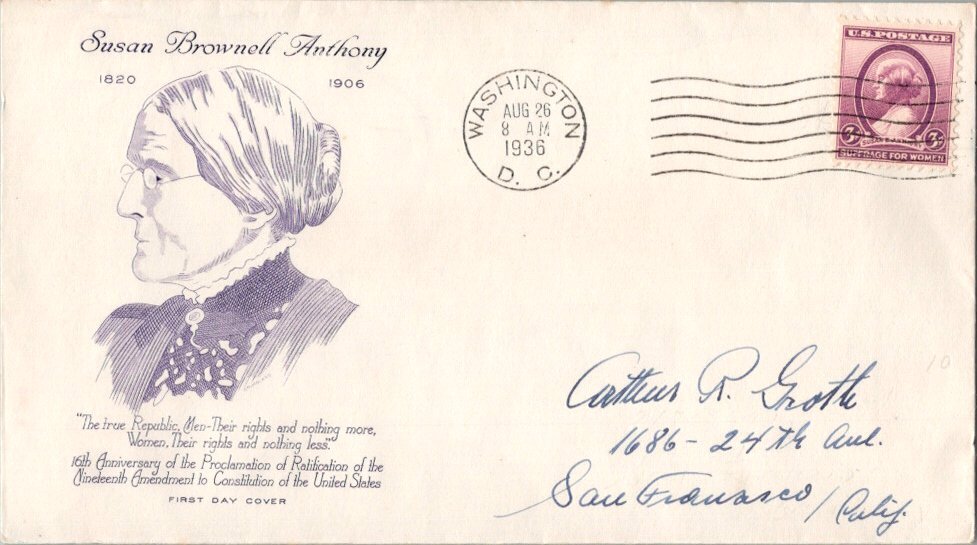 Susan Brownell Anthony
1820 1906
WASHINGTON
AUG 26
8 AM
1936
D. C.
U.S. POSTAGE
3¢ 3¢
SUSAN B. ANTHONY
SUFFRAGE FOR WOMEN
Arthur R. Groth
1686 - 24th Ave.
San Francisco / Calif.
"The true Republic, Men-Their rights and nothing more,
Women, Their rights and nothing less".
16th Anniversary of the Proclamation of Ratification of the
Nineteenth Amendment to Constitution of the United States
FIRST DAY COVER
10